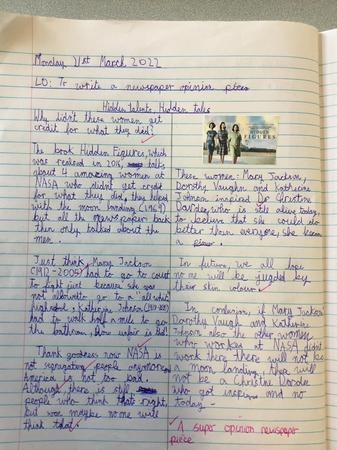 Monday 21st March 2022
LO: To write a newspaper opinion piece
Hidden talents, Hidden tales
Why didn't these women get
credit for what they did?
The book Hidden Figures, which
was realesed in 2016, talk
about 4 amazeing women at
NASA who didnt get credit
for what they did, they helped
with the moon landing (1969)
but all the newspaper back
then only talked about the
men.
Just think, Mary Jackson
(1921-2005) had to go to court
to fight just because she was
not allowed to go to a all white
highschool, Katherine Johnson
had to walk half a mile to go
the bathroom, How unfair is that!
Thank godness now NASA is
not segregating people anymore
America is not too bad.
Although, there is still
people who think that right,
but now maybe no one will
think that.
HIDDEN
FIGURES
These women: Mary Jackson,
Dorothy Vaughn and Katherine
Johnson inspired Dr Christine
Darden, who is still alive today,
to believe that she could do
better then everyone, she became
a
In future, we all hope
no one will be jugded by
their skin colour.
In conclusion, if Mary Jackson
Dorothy Vaugh and Katherine
Johnson also the other women
who worked at NASA didn't
work there there will not be
a moon landing, there will
not be a Christine Darden
who got inspired and no
today.
A super opinion newspaper
piece